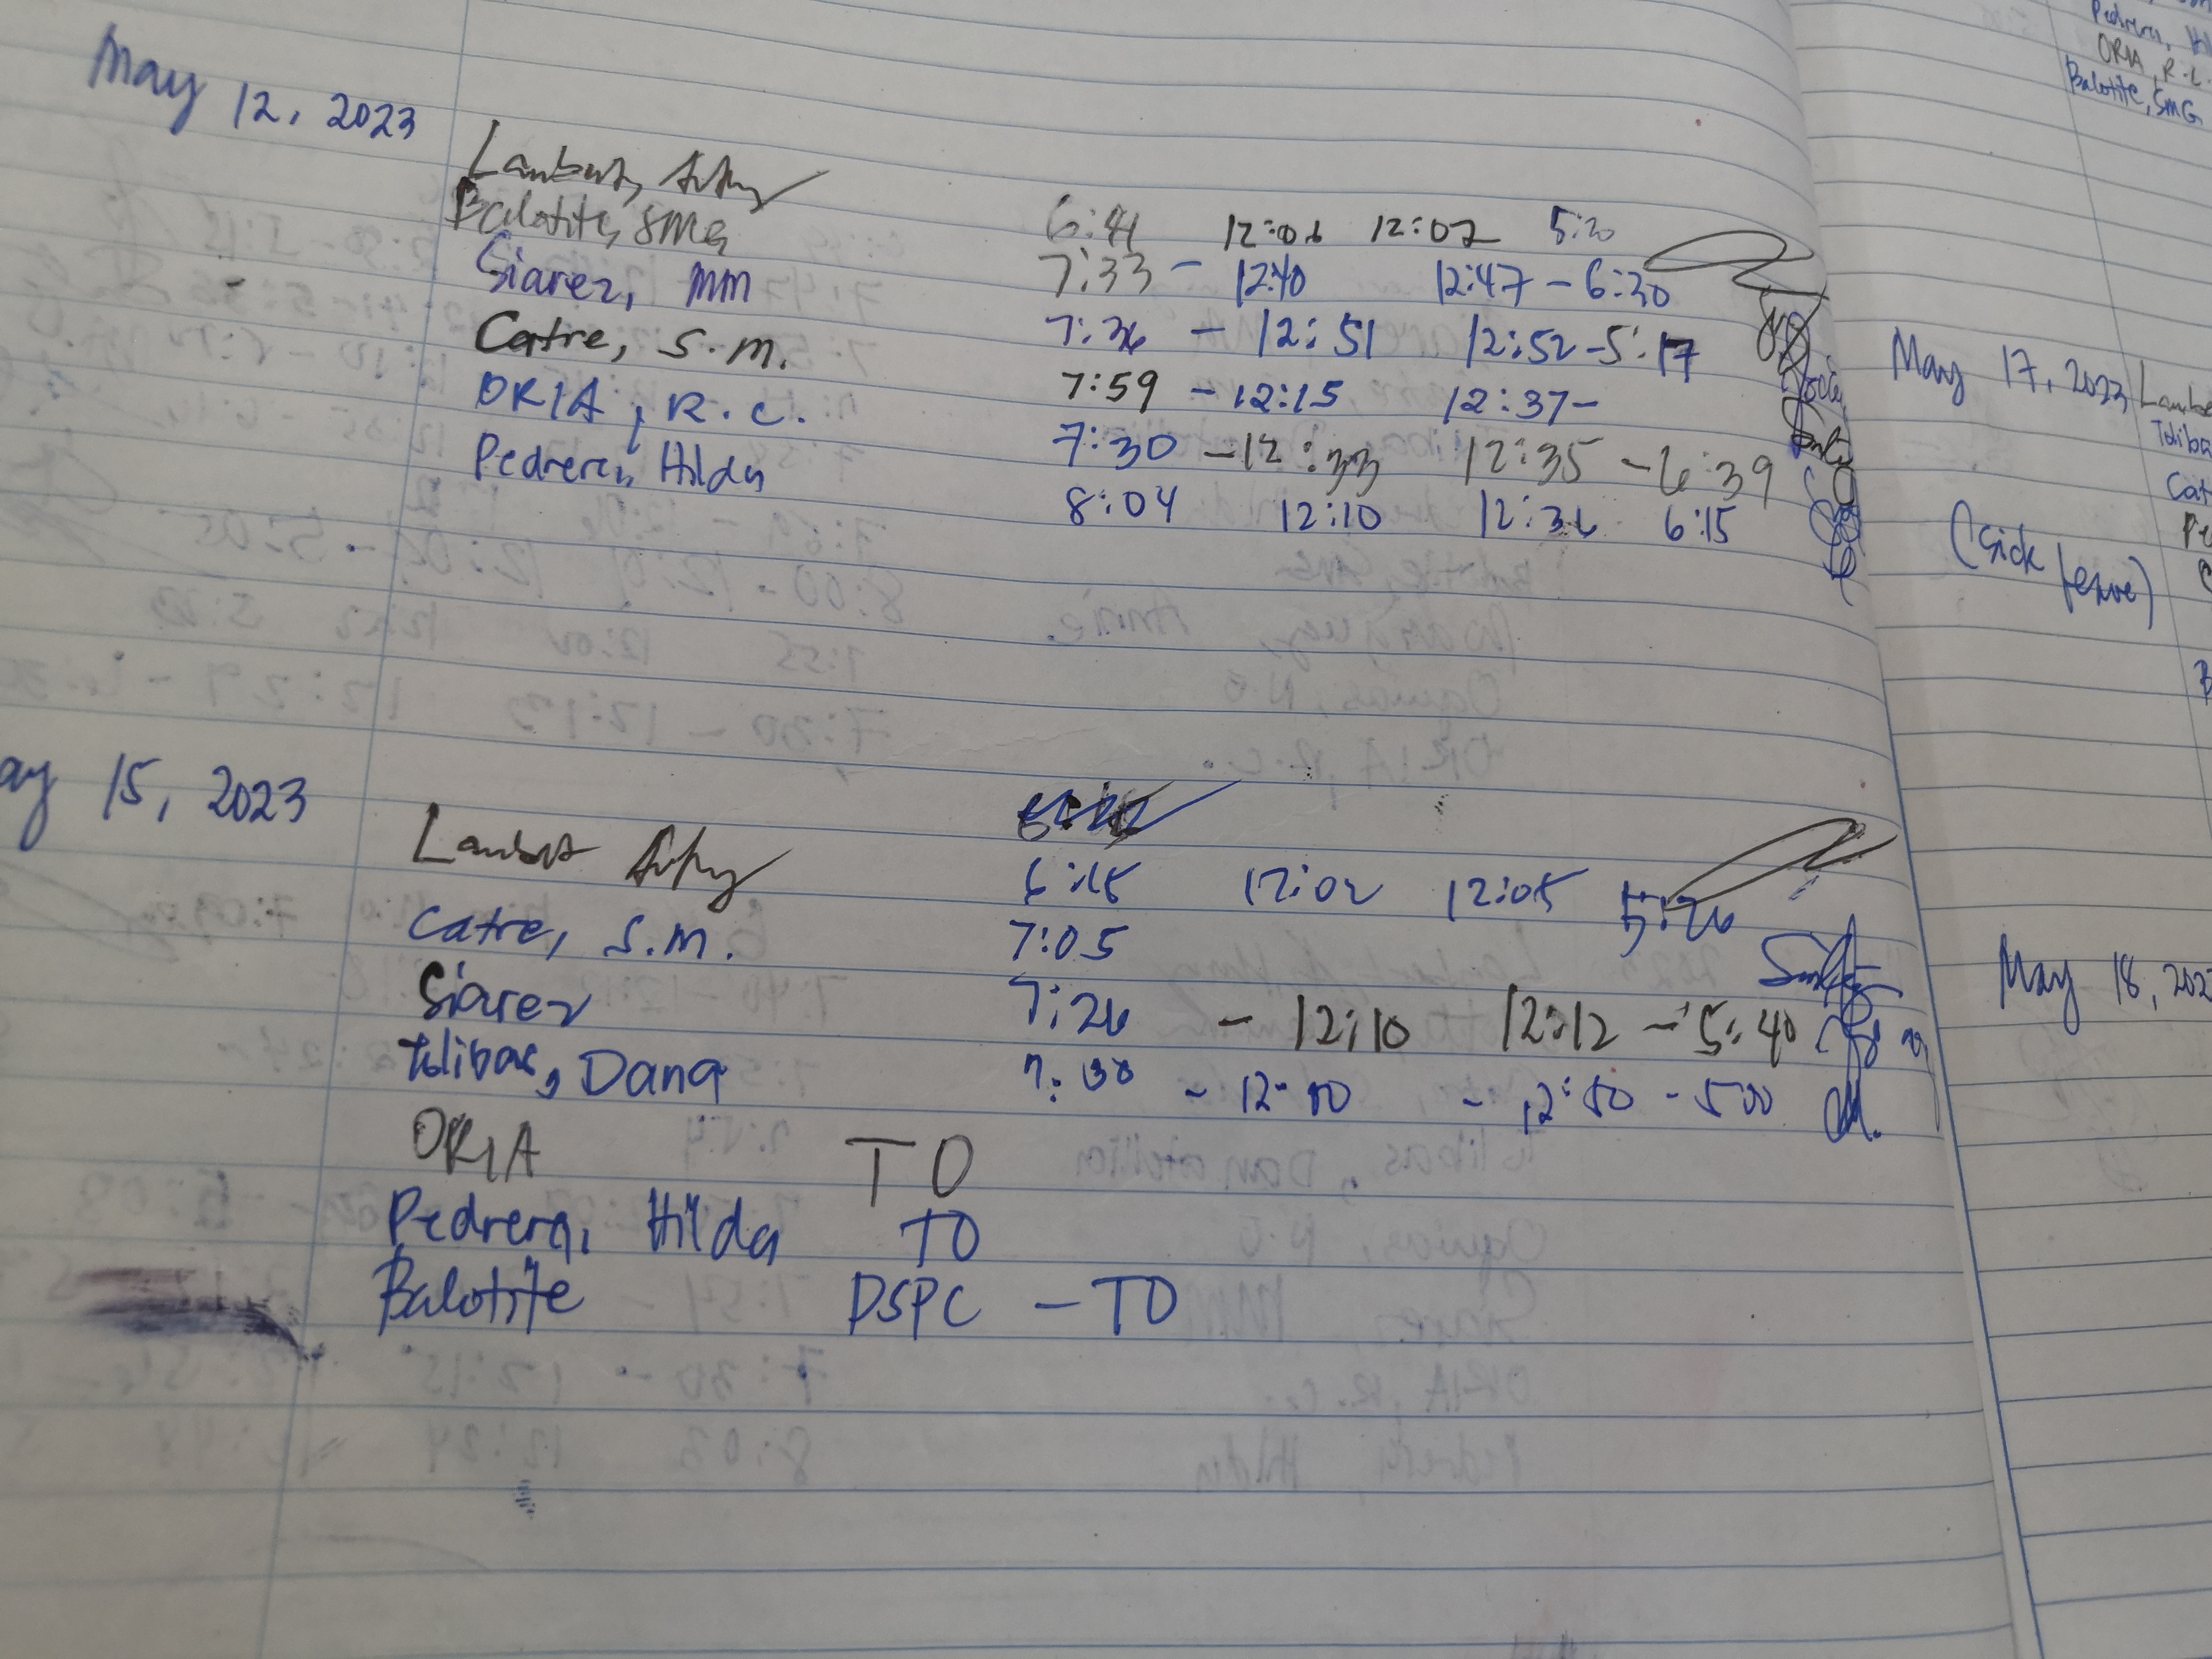 May 12, 2023
Lambert,
Balotite, SMG 6:41 12:06 12:07 5:20
Siarez, MM 7:33 - 12:40 12:47 - 6:30
Catre, S.M. 7:26 - 12:51 12:52 - 5:17
ORIA, R.C. 7:59 - 12:15 12:37 -
Pedrera, Hilda 7:30 - 12:33 12:35 - 6:39
8:04 12:10 12:36 6:15
ay 15, 2023
Lambert
6:15 12:02 12:05 5:26
Catre, S.M. 7:05
Siarez 7:26 - 12:10 12:12 - 5:40
Tolibas, Dana 7:30 - 12:10 - 12:50 - 500
ORIA TO
Pedrera, Hilda TO
Balotite DSPC - TO
Pedrera, Hil
ORIA, R.C.
Balotite, SMG
May 17, 2023 Lambe
Toliba
Cat
(sick leave) Pe
B
May 18, 202